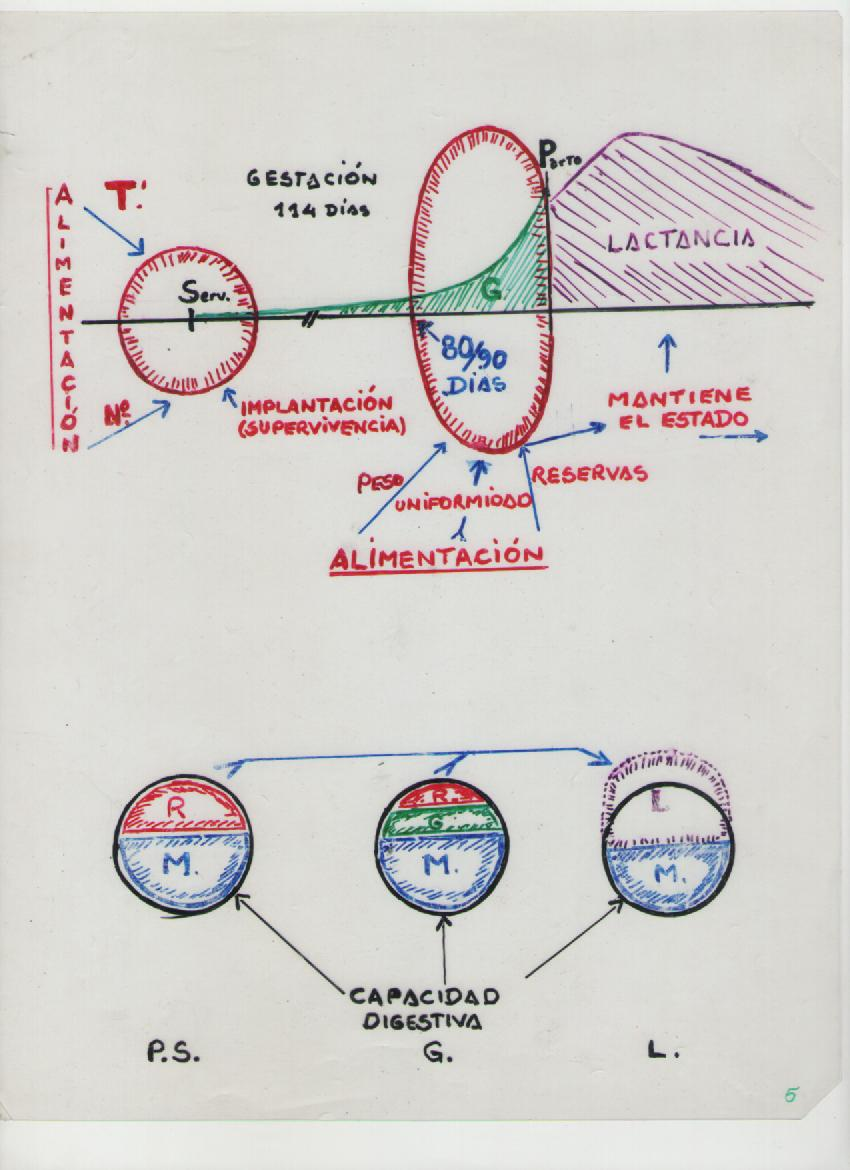 ALIMENTACIÓN
T.
GESTACIÓN
114 DÍAS
Parto
LACTANCIA
Serv.
G
80/90
DÍAS
Nº.
IMPLANTACIÓN
(SUPERVIVENCIA)
MANTIENE
EL ESTADO
PESO
UNIFORMIDAD
RESERVAS
ALIMENTACIÓN
R
M.
R.
G
M.
L
M.
CAPACIDAD
DIGESTIVA
P.S.
G.
L.
5